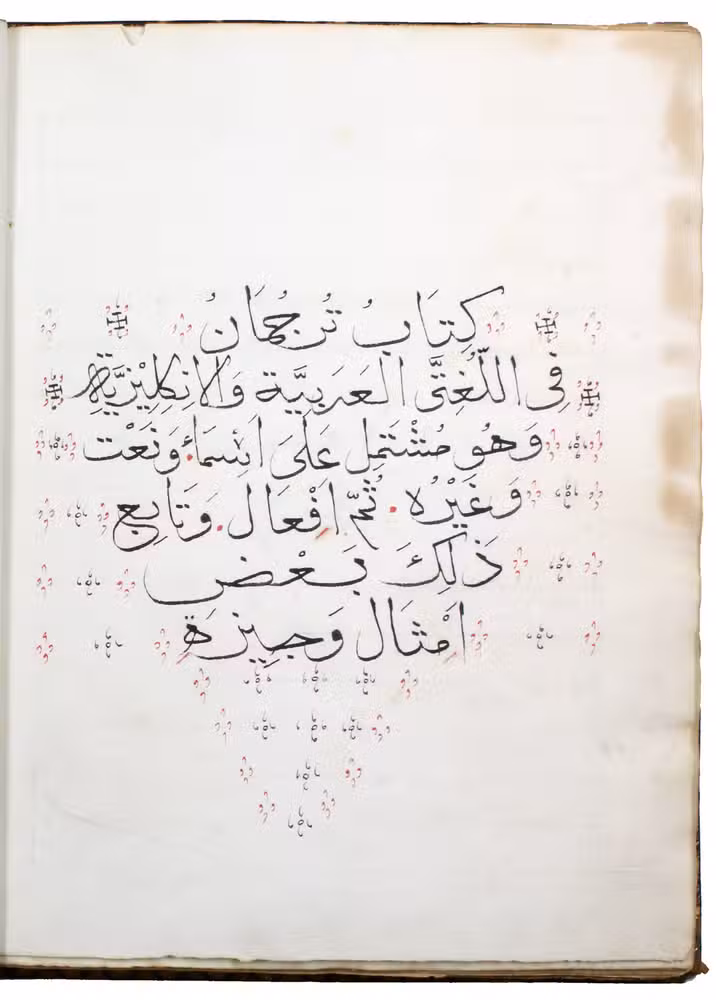 كِتَابُ تُرْجُمَانُ
فِى اللُّغَتَىَّ العَرَبِيَّة وَالانِكِلِيْزِيَّةِ
وَهُو مُشْتَمِل عَلَى اَسْمَاءُ وَنَعْت
وَغَيْرُه. ثُمّ اَفْعَال. وَتَابِع
ذَلِكَ بَعْض
اَمْثَال وَجِيْزَة